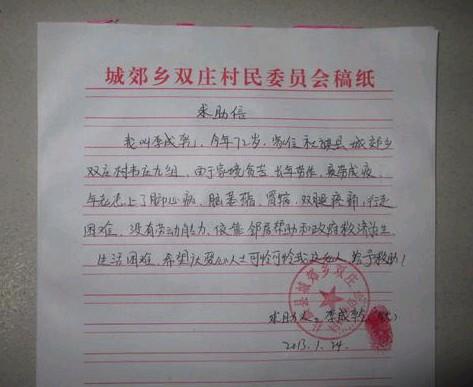 城郊乡双庄村民委员会稿纸
求助信
我叫李成群，今年72岁，家住社旗县城郊乡
双庄村韦庄九组，由于家境贫苦，长年劳作，疾劳成疾，
年老患上了脑血病、脑萎缩、胃病、双腿疼痛，行走
困难，没有劳动能力，依靠邻居帮助和政府救济为生
生活困难，希望认爱心人士可怜可怜我这老人，给予救助！
城郊乡双庄
求助人：李成群
2013.1.24.